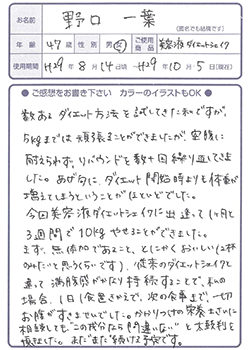 お名前
野口 一葉
(匿名でも結構です)
年齢 47歳 性別 男・女 ご使用商品 美容液ダイエットシェイク
使用期間 H29年8月14日~H29年10月5日(現在)
●ご感想をお書き下さい カラーのイラストもOK●
数あるダイエット方法を試してきた私ですが、
5kgまでは頑張ることができましたが、空腹に
耐えられず、リバウンドを数十回繰り返してきま
した。あげ句に、ダイエット開始時よりも体重が
増えてしまうということがほとんどでした。
今回美容液ダイエットシェイクに出逢って1ヶ月と
3週間で10kgやせることができました。
まず、無添加であること、とにかくおいしい(二杯
のみたいと思うくらいです)、従来のダイエットシェイクと
違って満腹感がかなり持続することで、私の
場合、1日1食置きかえで、次の食事まで、一切
お腹がすきませんでした。かかりつけの栄養士さんに
相談しても、"この成分なら間違いない"と太鼓判を
頂きました。まだまだ続ける予定です。